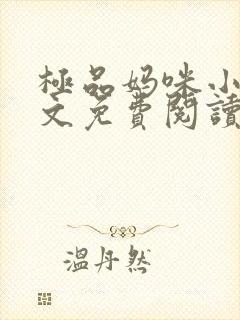 極品妈咪小
文免費閱讀
溫丹然